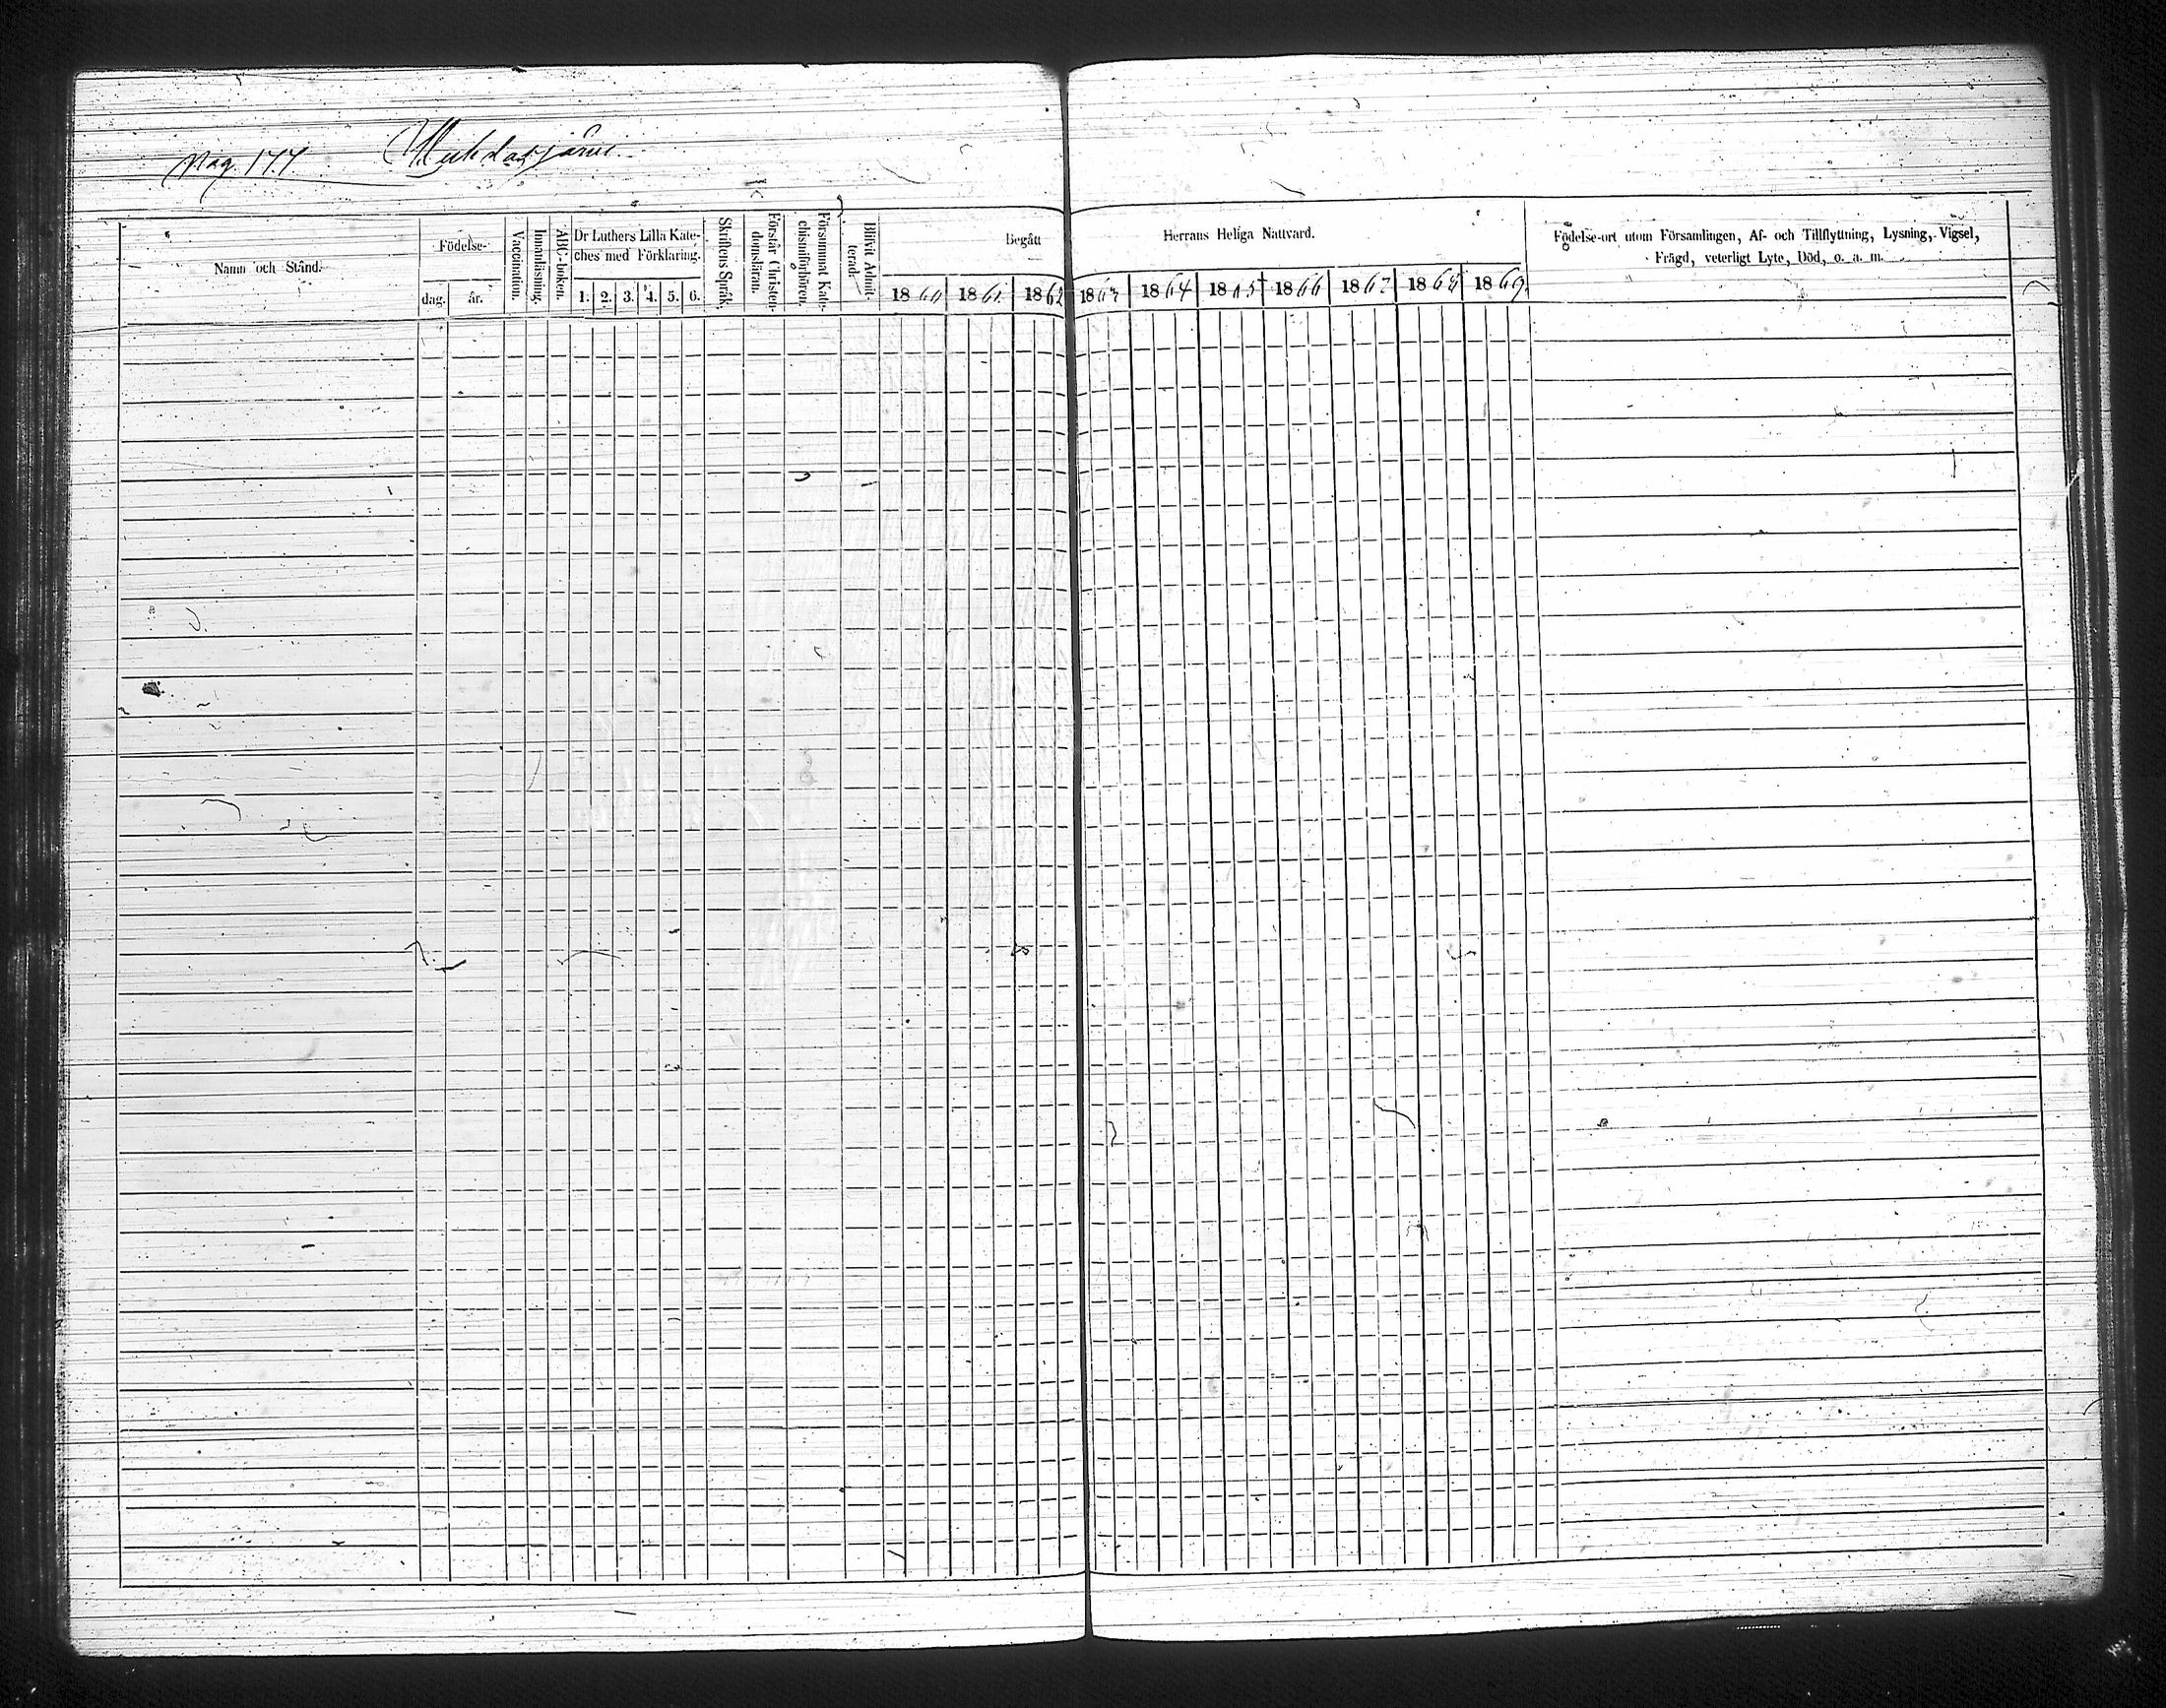 Pag. 177
Namn och Stånd.
Födelse-
dag. år.
Vaccination.
Innanläsning.
ABC-boken.
Dr Luthers Lilla Kate-
ches med Förklaring.
1. 2. 3. 4. 5. 6.
Skriftens Språk.
Förstår Christen-
domsläran.
Försummat Kate-
chismiförhören.
Blifvit Admit-
terad.
Begått Herrans Heliga Nattvard.
1860 1861 1862 1863 1864 1865 1866 1867 1868 1869
Födelse-ort utom Församlingen, Af- och Tillflyttning, Lysning, Vigsel,
Frägd, veterligt Lyte, Död, o. a. m.